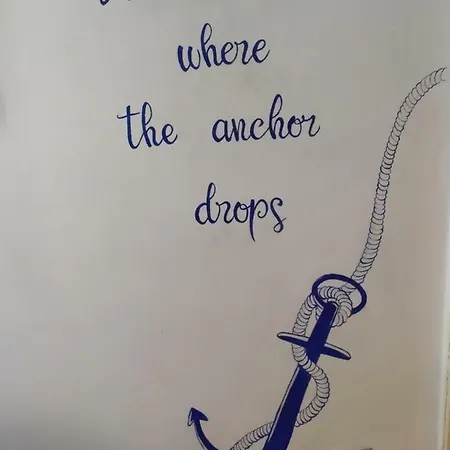 where
the anchor
drops